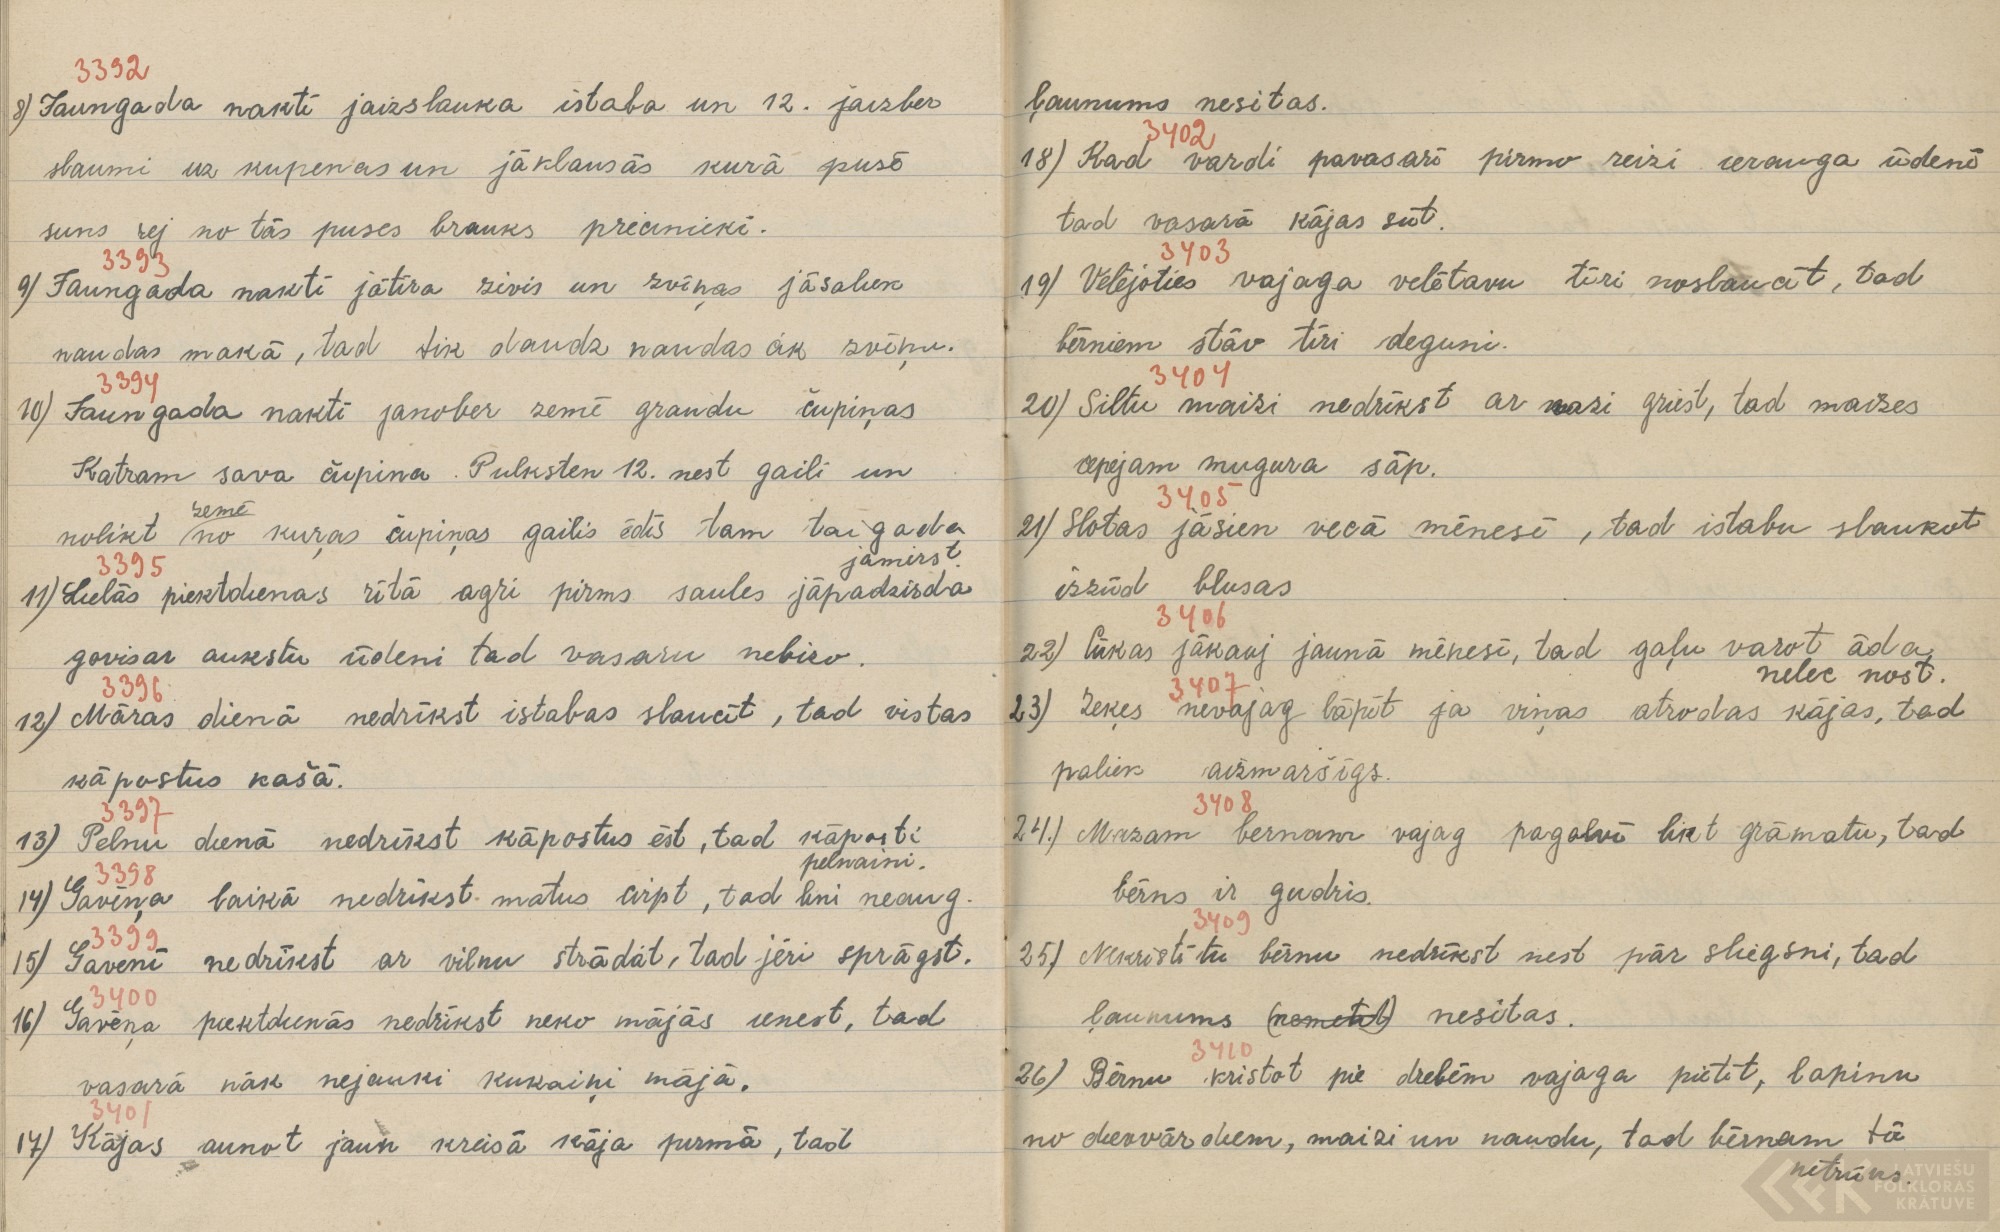 3392
8) Jaungada naktī jaizslauka istaba un 12. jaizber
slaumi uz kupenas un jāklausās kurā pusē
suns rej no tās puses brauks precinieki.
3393
9) Jaungada naktī jātīra zivis un zvīņas jāsaliek
naudas makā, tad tik daudz naudas cik zvīņu.
3394
10) Jaungada naktī janober zemē graudu čupiņas
Katram sava čupina. Pulksten 12. nest gaili un
nolikt zemē no kuŗas čupiņas gailis ēdīs tam tai gada
jāmirst.
3395
11) Lielās piektdienas rītā agri pirms saules jāpadzirda
govis ar aukstu ūdeni tad vasaru nebizo.
3396
12) Māras dienā nedrīkst istabas slaucīt, tad vistas
kāpostus kašā.
3397
13) Pelnu dienā nedrīkst kāpostus ēst, tad kāposti
pelnaini.
3398
14) Gavēņa laikā nedrīkst matus cirpt, tad lini neaug.
3399
15) Gavenī nedrīkst ar vilnu strādāt, tad jēri sprāgst.
3400
16) Gavēņa piektdienās nedrīkst neko mājās ienest, tad
vasarā nāk nejauki kukaiņi mājā.
3401
17) Kājas aunot jaun kreisā kāja pirmā, tad
ļaunums nesitas.
3402
18) Kad vardi pavasarī pirmo reizi ierauga ūdenī
tad vasarā kājas sūt.
3403
19) Velējoties vajaga velētavu tīri noslaucīt, tad
bērniem stāv tīri deguni.
3404
20) Siltu maizi nedrīkst ar nazi griest, tad maizes
cepejam mugura sāp.
3405
21) Slotas jāsien vecā mēnesī, tad istabu slaukot
izzūd blusas
3406
22) Cūkas jākauj jaunā mēnesī, tad gaļu varot āda
nelec nost.
3407
23) Zeķes nevajag lāpīt ja viņas atrodas kājas, tad
paliek aizmaršīgs.
3408
24.) Mazam bernam vajag pagalvī likt grāmatu, tad
bērns ir gudris.
3409
25) Nekristītu bērnu nedrīkst nest pār sliegsni, tad
ļaunums nesitas.
3410
26) Bērnu kristot pie drebēm vajaga pietīt, lapinu
no dievvārdiem, maizi un naudu, tad bērnam tā
netrūks.
LATVIEŠU
FOLKLORAS
KRĀTUVE